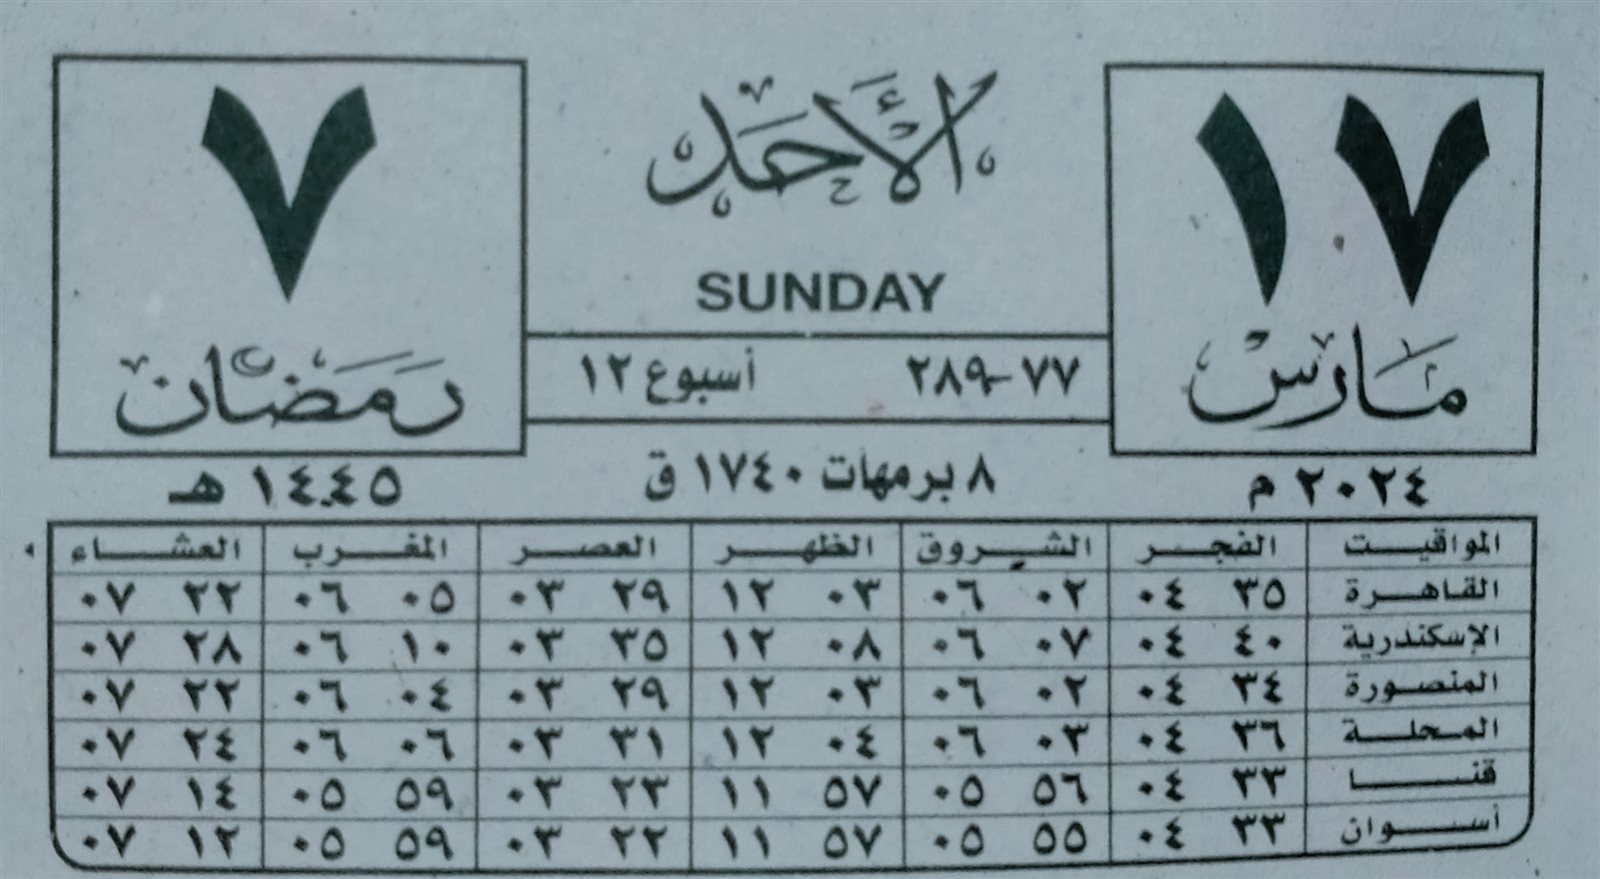 ١٧
مارس
٢٠٢٤ م
الأحد
SUNDAY
٧٧-٢٨٩ أسبوع ١٢
٨ برمهات ١٧٤٠ ق
٧
رمضان
١٤٤٥ هـ
المواقيت الفجر الشروق الظهر العصر المغرب العشاء
القاهرة ٣٥ ٠٤ ٠٢ ٠٦ ٠٣ ١٢ ٢٩ ٠٣ ٠٥ ٠٦ ٢٢ ٠٧
الإسكندرية ٤٠ ٠٤ ٠٧ ٠٦ ٠٨ ١٢ ٣٥ ٠٣ ١٠ ٠٦ ٢٨ ٠٧
المنصورة ٣٤ ٠٤ ٠٢ ٠٦ ٠٣ ١٢ ٢٩ ٠٣ ٠٤ ٠٦ ٢٢ ٠٧
المحلة ٣٦ ٠٤ ٠٣ ٠٦ ٠٤ ١٢ ٣١ ٠٣ ٠٦ ٠٦ ٢٤ ٠٧
قنا ٣٣ ٠٤ ٥٦ ٠٥ ٥٧ ١١ ٢٣ ٠٣ ٥٩ ٠٥ ١٤ ٠٧
أسوان ٣٣ ٠٤ ٥٥ ٠٥ ٥٧ ١١ ٢٢ ٠٣ ٥٩ ٠٥ ١٢ ٠٧